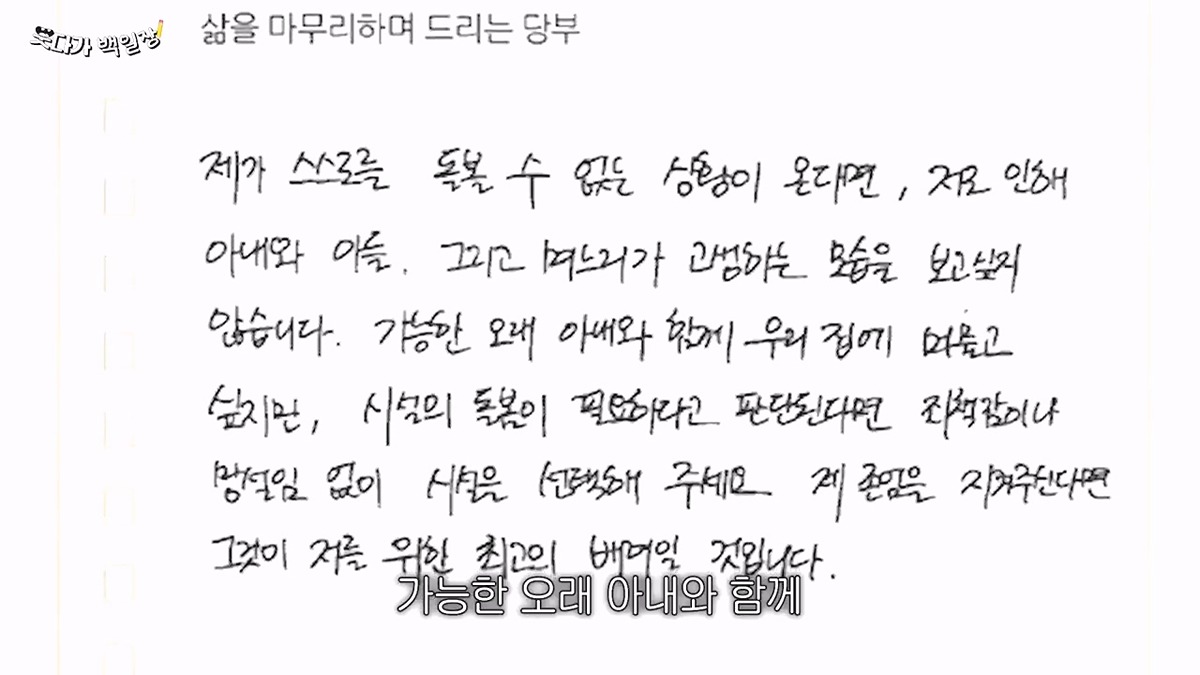 못다가 백일장
삶을 마무리하며 드리는 당부
제가 스스로를 돌볼 수 없는 상황이 온다면, 저로 인해
아내와 아들. 그리고 며느리가 고생하는 모습을 보고싶지
않습니다. 가능한 오래 아내와 함께 우리 집에 머물고
싶지만, 시설의 돌봄이 필요하다고 판단된다면 죄책감이나
망설임 없이 시설을 선택해 주세요. 제 존엄을 지켜주신다면
그것이 저를 위한 최고의 배려일 것입니다.
가능한 오래 아내와 함께